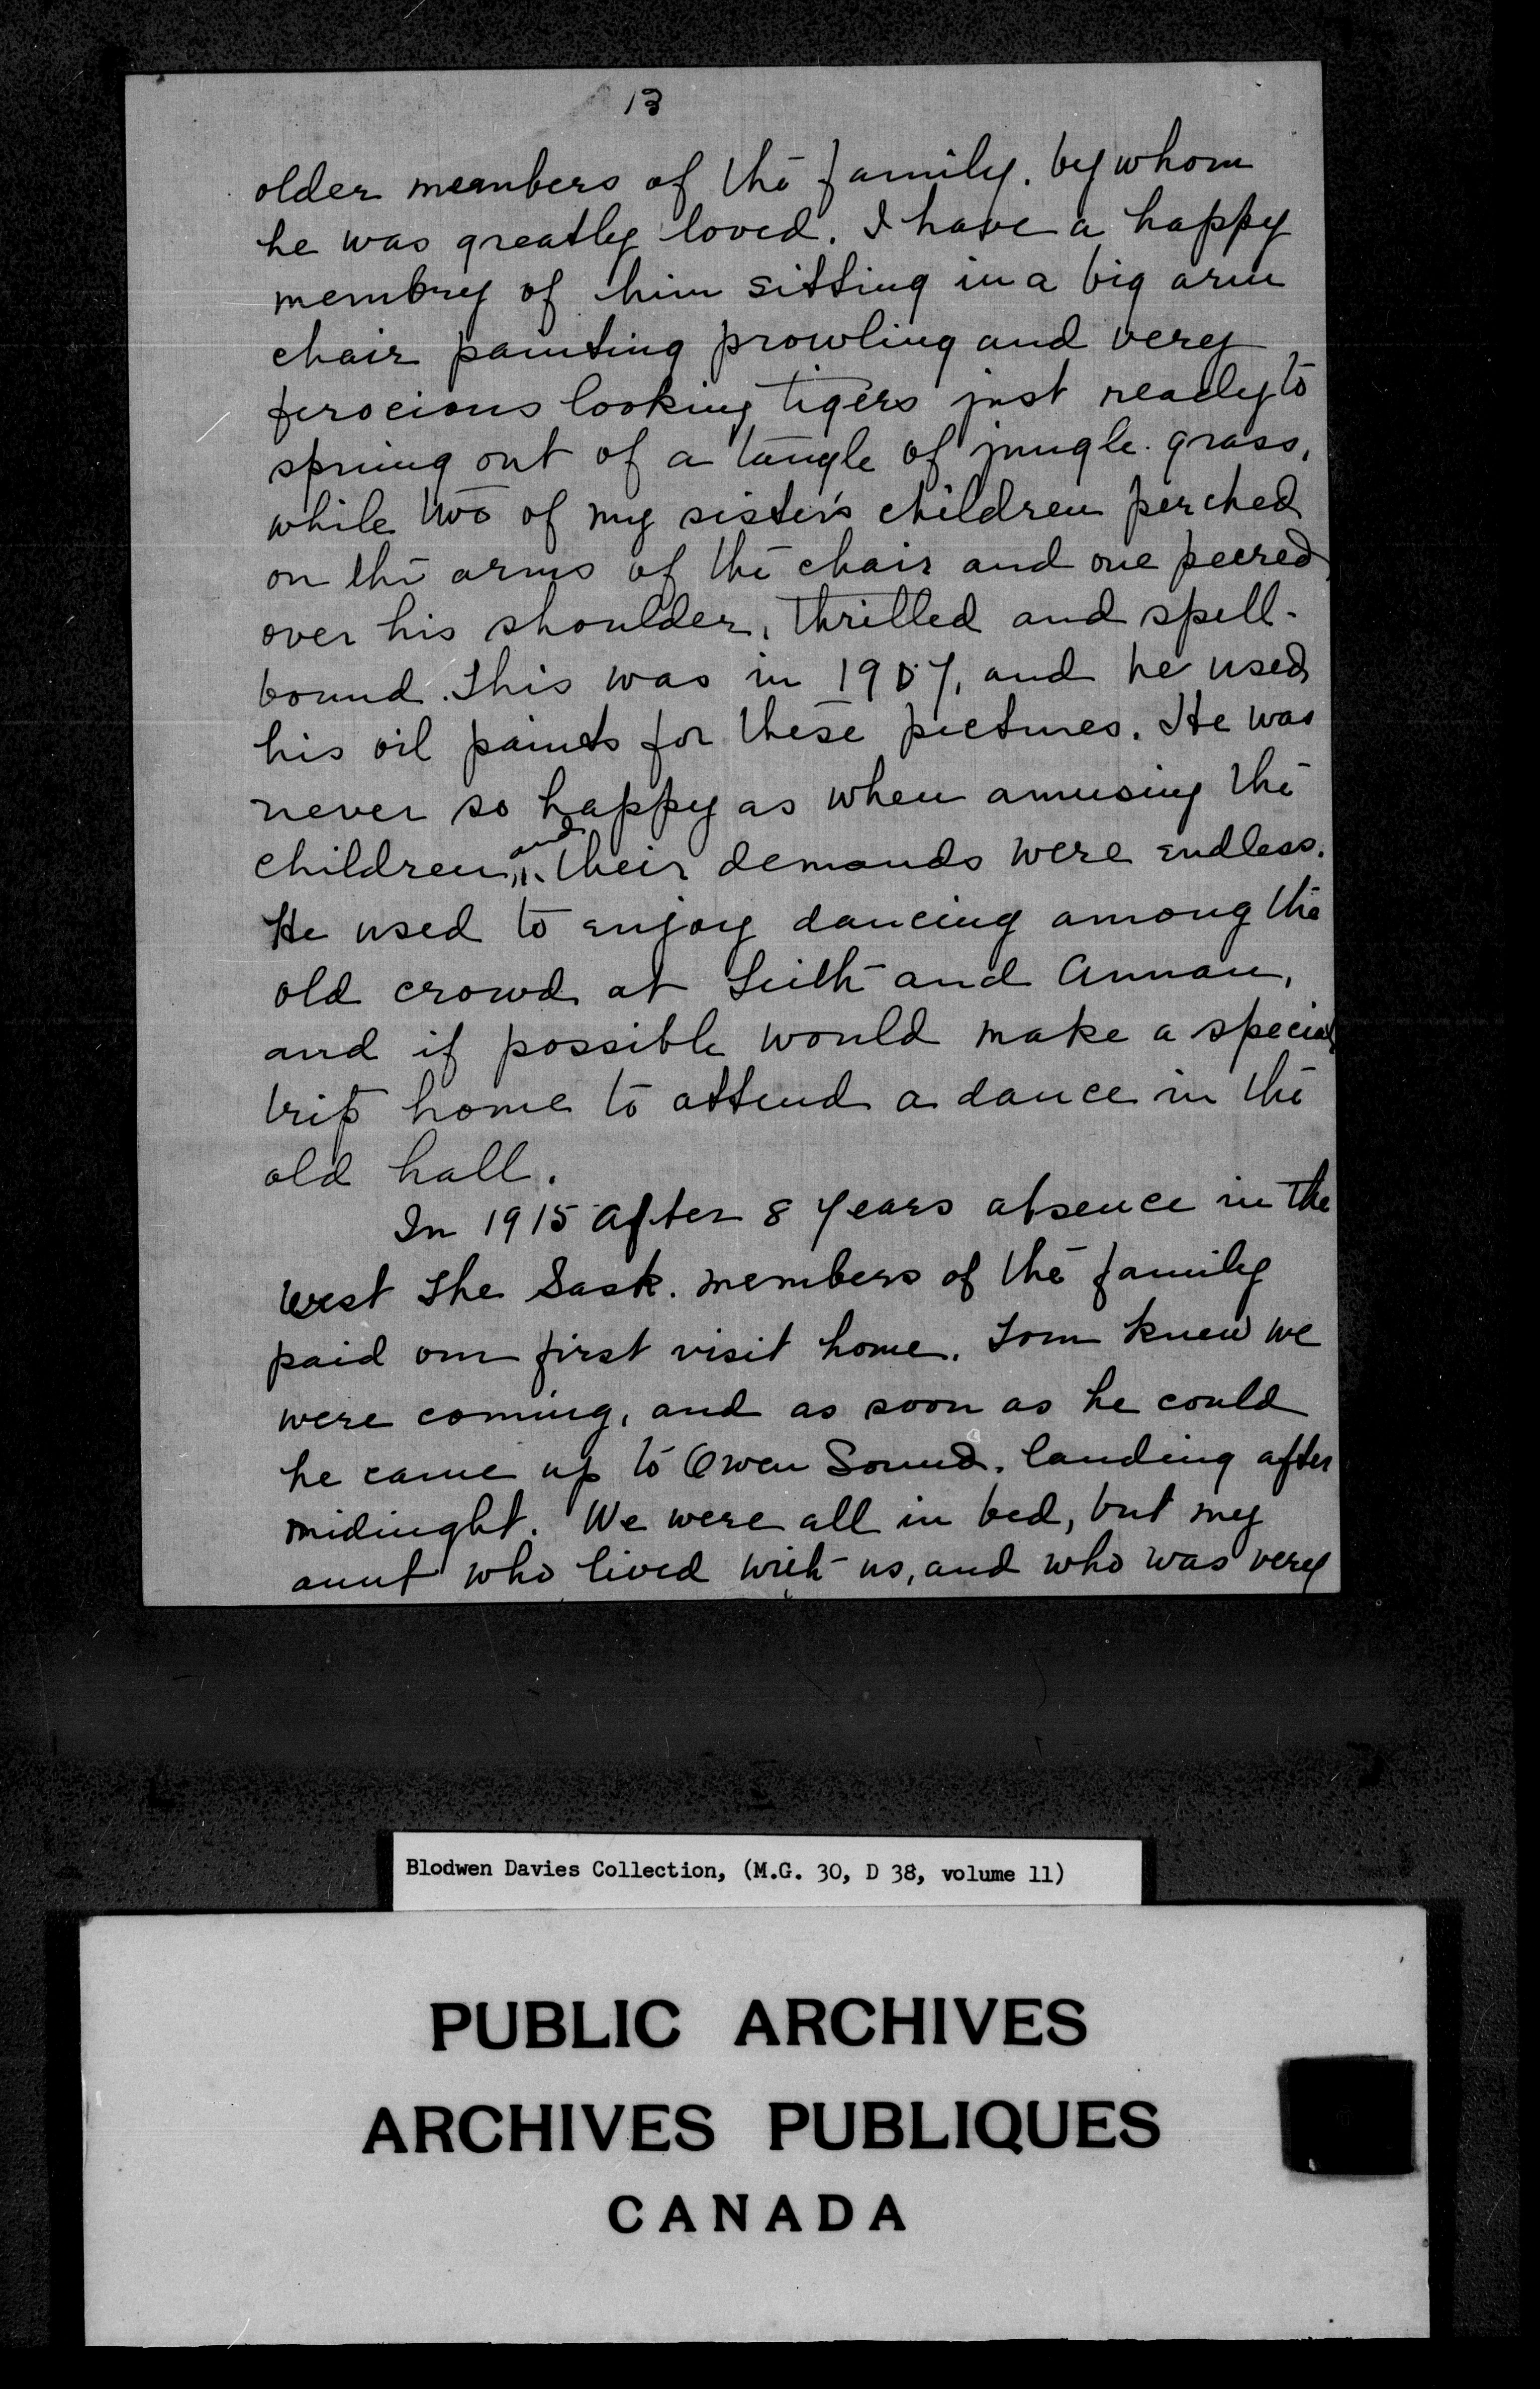 13
older meanbers of the family. by whom
he was greatly loved. I have a happy
membry of him sitting in a big arm
chair painting prowling and very
ferocious looking tigers just ready to
spring out of a tangle of jungle. grass,
while two of my sister's children perched
on the arms of the chair and one peered
over his shoulder, thrilled and spell-
bound. This was in 1907, and he used
his oil paints for these pictures. He was
never so happy as when amusing the
children, and their demands were endless.
He used to enjoy dancing among the
old crowd at Leith and Annan,
and if possible would make a special
trip home to attend a dance in the
old hall.
In 1915 after 8 years absence in the
west the Sask. members of the family
paid our first visit home. Tom knew we
were coming, and as soon as he could
he came up to Owen Sound, landing after
midinght. We were all in bed, but my
aunt who lived with us, and who was very
Blodwen Davies Collection, (M.G. 30, D 38, volume 11)
PUBLIC ARCHIVES
ARCHIVES PUBLIQUES
CANADA